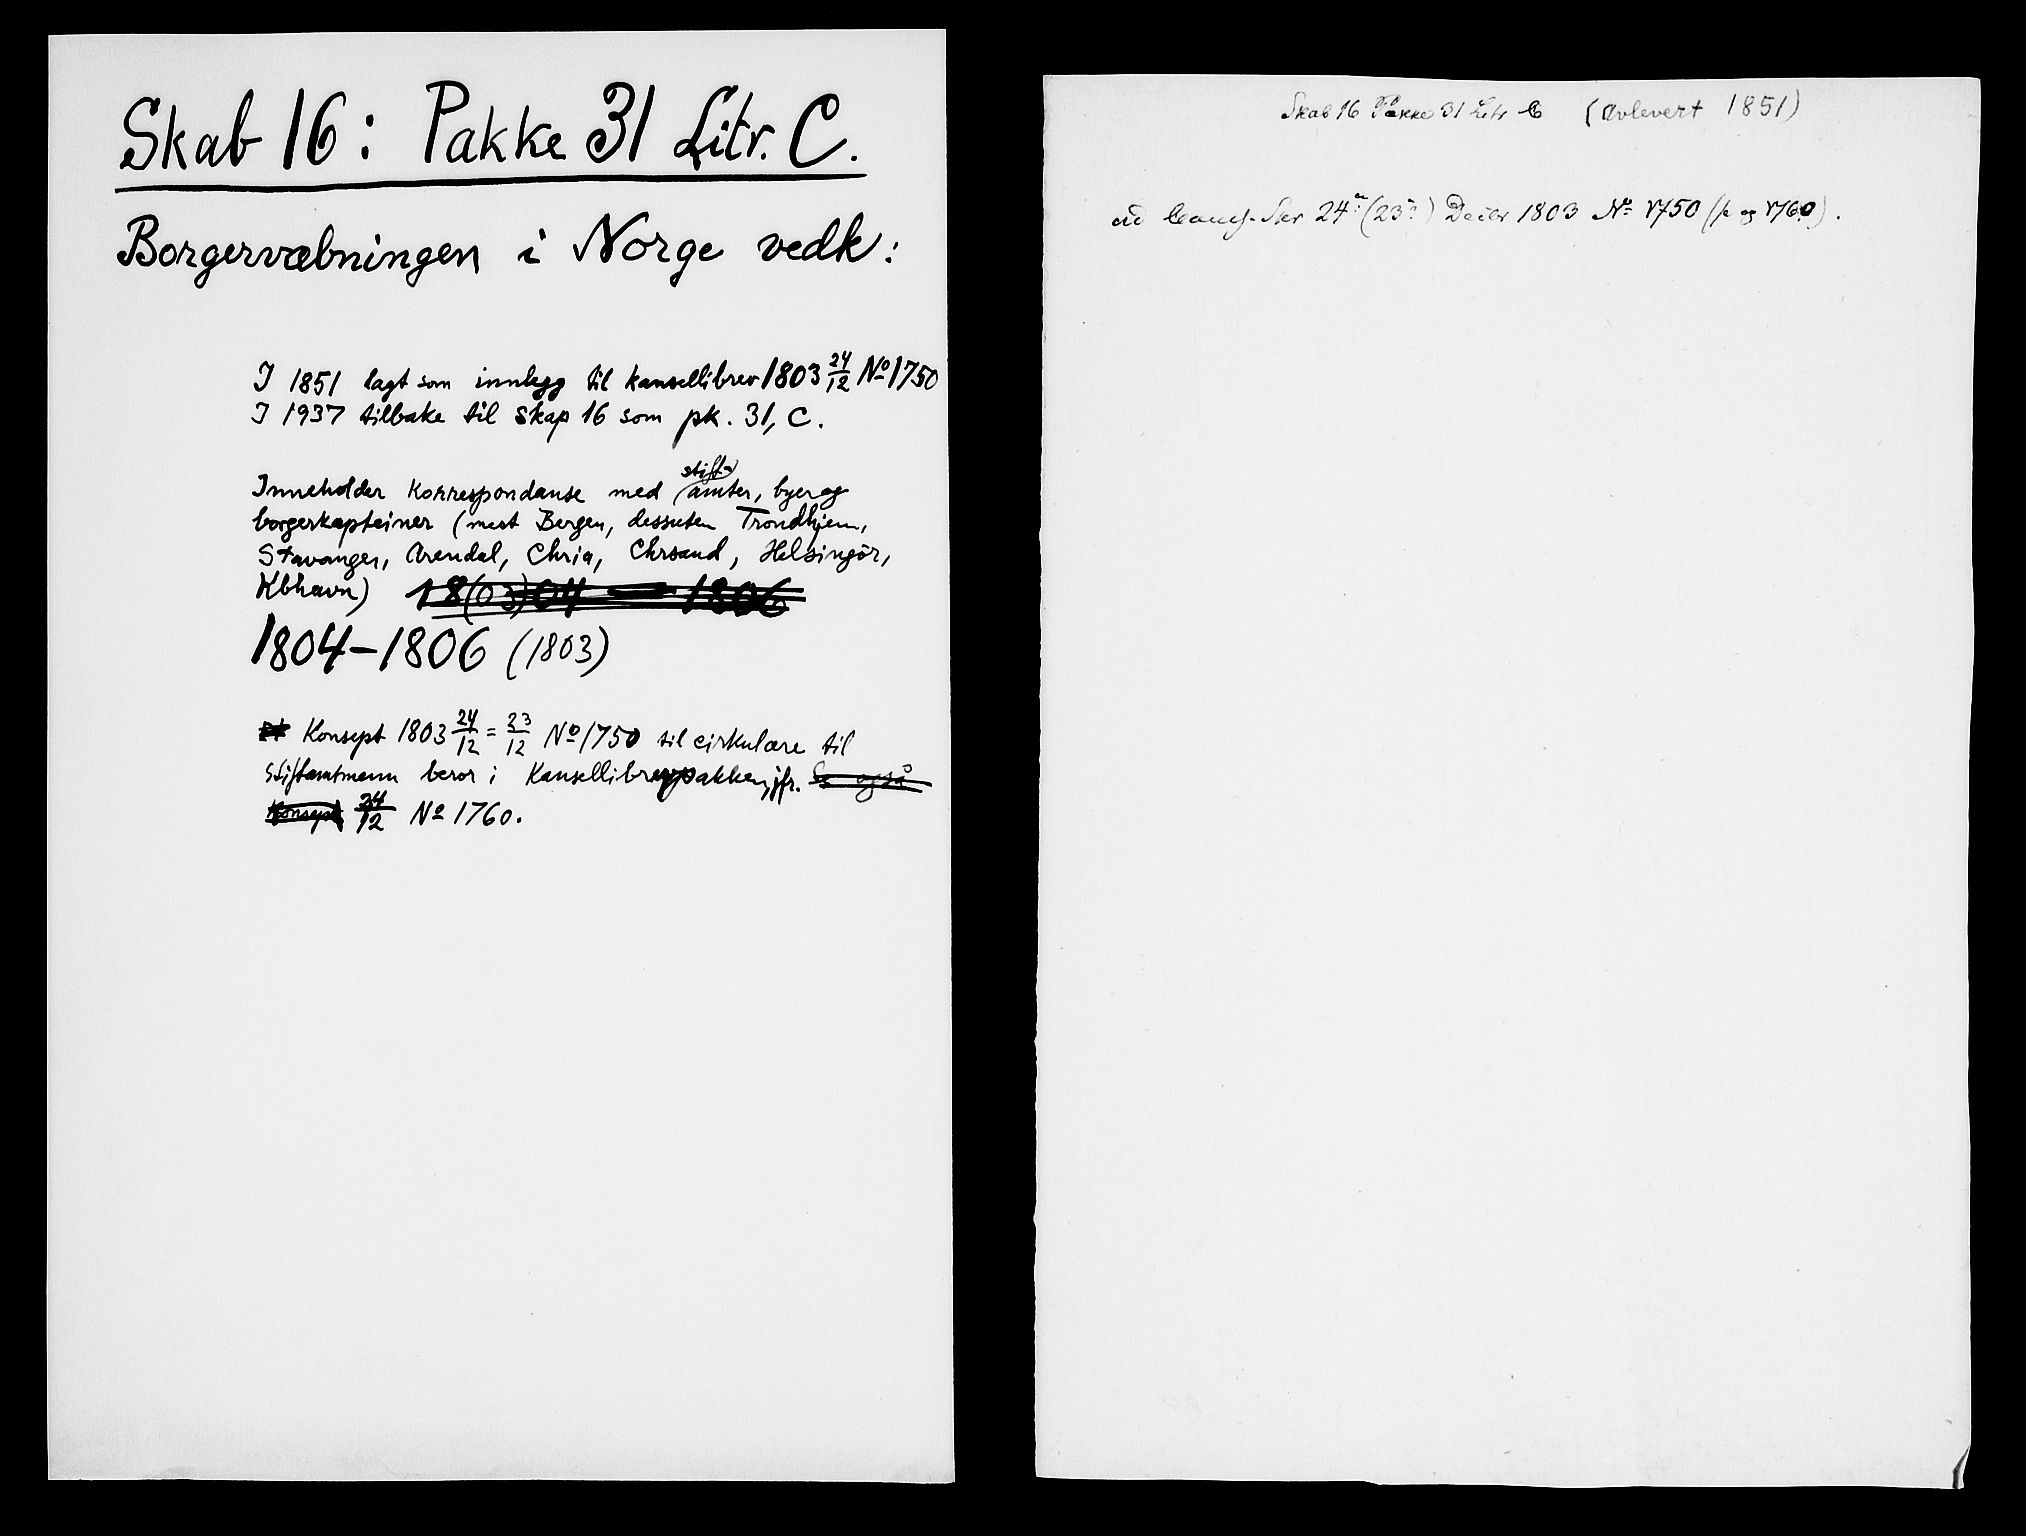 Skab 16: Pakke 31 Litr. C.
Borgervæbningen i Norge vedk:
I 1851 lagt som innlegg til kansellibrev 1803 24/12 No 1750
I 1937 tilbake til Skap 16 som pk. 31, C.
stifts
Inneholder korrespondanse med amter, byer og
borgerkapteiner (mest Bergen, dessuten Trondhjem,
Stavanger, Arendal, Chria, Chrsand, Helsingör,
Kbhavn) 18(03)04 — 1806
1804–1806 (1803)
Konsept 1803 24/12 = 23/12 No 1750 til cirkulære til
Stiftamtmenn beror i Kansellibrevpakken, jfr. Se også
Konsept 24/12 No 1760.
Skab 16 Pakke 31 Litr C (Avlevert 1851)
ad Cancj. Skr 24 (23) Decbr 1803 No 1750 (se og 1760).